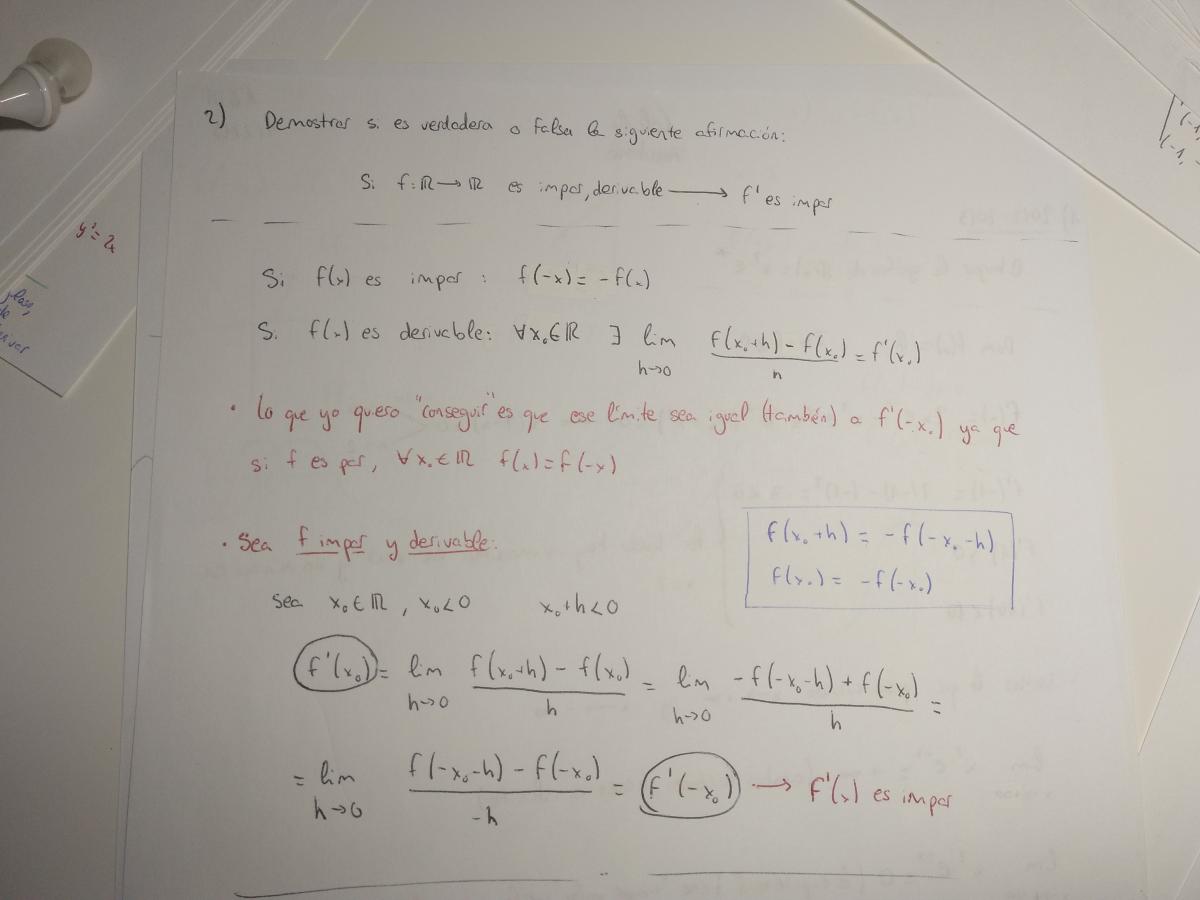 2) Demostrar si es verdadera o falsa la siguiente afirmación:
Si f: ℝ → ℝ es impar, derivable → f' es impar
Si f(x) es impar : f(-x) = -f(x)
Si f(x) es derivable: ∀x₀∈ℝ ∃ lim h→0 (f(x₀+h) - f(x₀))/h = f'(x₀)
• Lo que yo quiero "conseguir" es que ese límite sea igual (también) a f'(-x₀) ya que
si f es par, ∀x₀∈ℝ f(x) = f(-x)
• Sea f impar y derivable:
f(x₀+h) = -f(-x₀-h)
f(x₀) = -f(-x₀)
Sea x₀∈ℝ, x₀<0 x₀+h<0
f'(x₀) = lim h→0 (f(x₀+h) - f(x₀))/h = lim h→0 (-f(-x₀-h) + f(-x₀))/h =
= lim h→0 (f(-x₀-h) - f(-x₀))/-h = f'(-x₀) → f'(x) es impar
y'=2
(-1,
(-1,